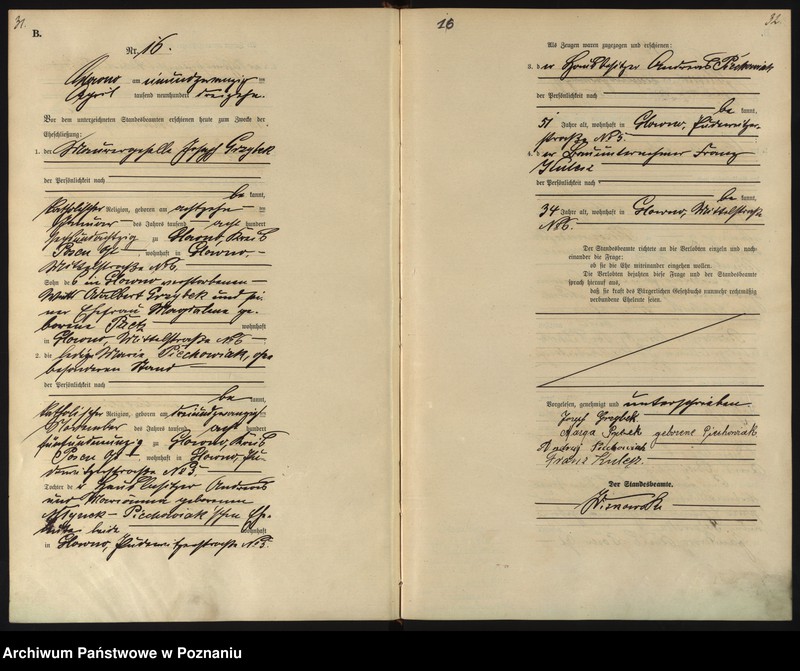 31.
B.
Nr. 16.
Glowno am einundzwanzig ten
April tausend neunhundert dreizehn.
Vor dem unterzeichneten Standesbeamten erschienen heute zum Zwecke der
Eheschließung:
1. der Maurergeselle Joseph Grzybek
der Persönlichkeit nach
be kannt,
katholischer Religion, geboren am achtzehn ten
Januar des Jahres tausend acht hundert
zu Glowno, Kreis
Posen Ost, wohnhaft in Glowno,
Mittelstraße No 6.
Sohn des in Glowno verstorbenen
Adalbert Grzybek und sei-
ner Ehefrau Magdalena ge-
borene wohnhaft
in Glowno, Mittelstraße No 6
2. die ledige Maria Piechowiak, ohne
besonderen Stand
der Persönlichkeit nach
be kannt,
katholischer Religion, geboren am dreiundzwanzig ten
November des Jahres tausend acht hundert
fünfundneunzig zu Glowno, Kreis
Posen Ost, wohnhaft in Glowno, Pu-
No 5.
Tochter der Hausbesitzer Andreas
und Marianna geborenen
Mlynek - Piechowiak'schen Ehe-
leute beide wohnhaft
in Glowno, No 5.
16
32.
Als Zeugen waren zugezogen und erschienen:
3. der Hausbesitzer Andreas Piechowiak
der Persönlichkeit nach
be kannt,
51 Jahre alt, wohnhaft in Glowno,
straße No 5.
4. der Bauunternehmer Franz
der Persönlichkeit nach
be kannt,
34 Jahre alt, wohnhaft in Glowno, Mittelstraße
No 6.
Der Standesbeamte richtete an die Verlobten einzeln und nach-
einander die Frage:
ob sie die Ehe miteinander eingehen wollen.
Die Verlobten bejahten diese Frage und der Standesbeamte
sprach hierauf aus,
daß sie kraft des Bürgerlichen Gesetzbuchs nunmehr rechtmäßig
verbundene Eheleute seien.
Vorgelesen, genehmigt und unterschrieben
Józef Grzybek
Marya Grzybek geborene Piechowiak
Andrzej Piechowiak
Der Standesbeamte.
Archiwum Państwowe w Poznaniu